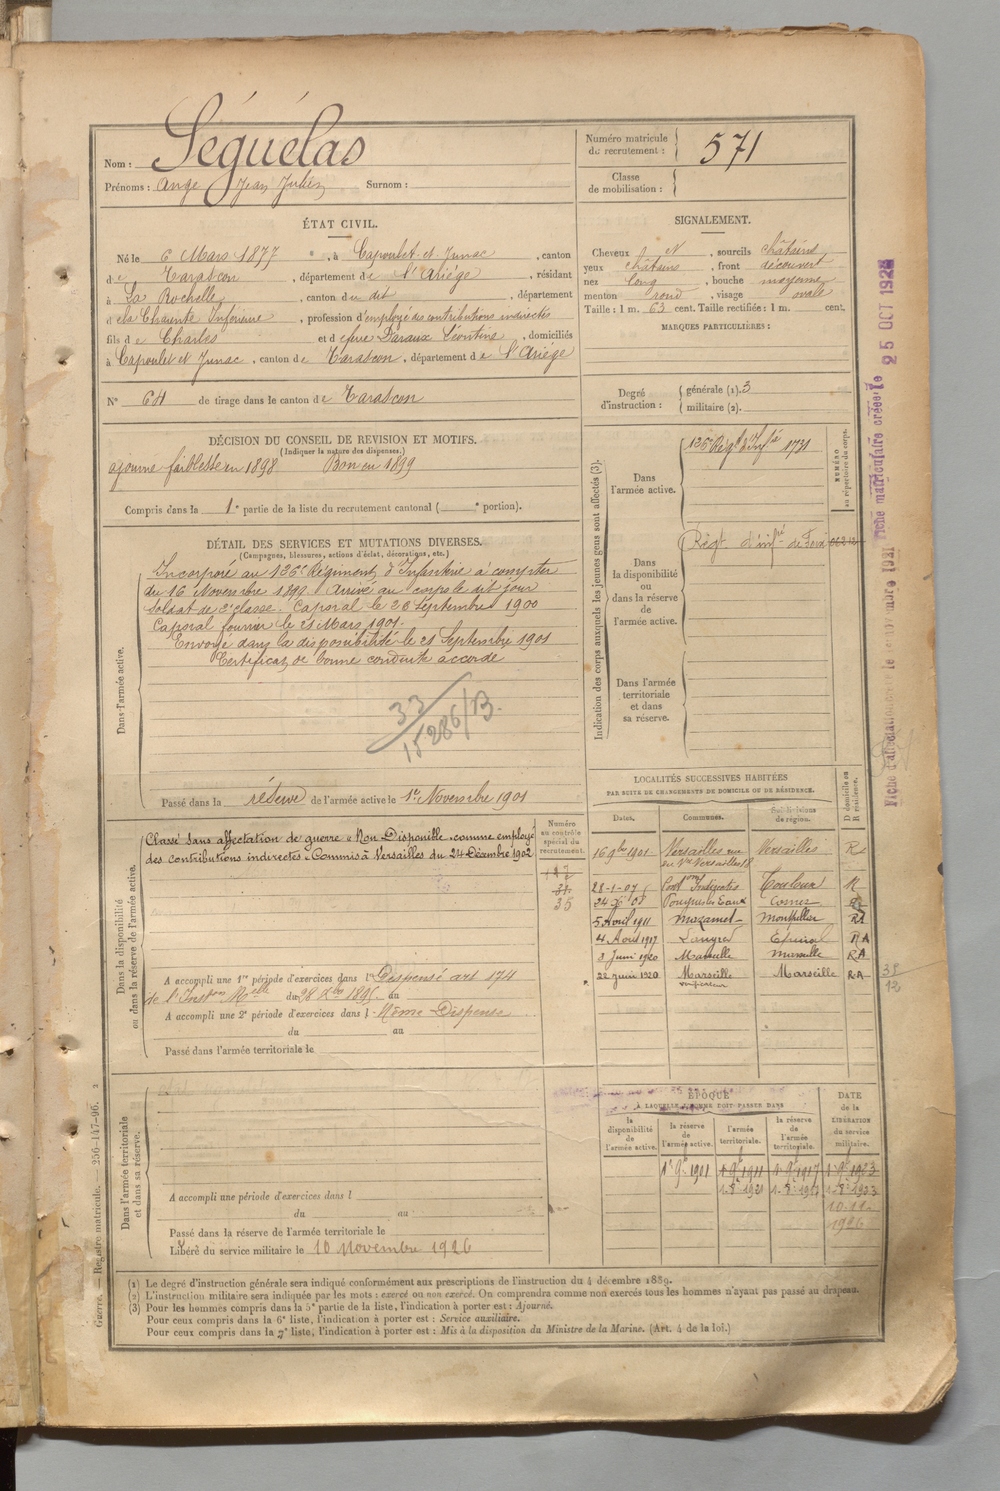 Nom : Séguélas
Prénoms : Ange Jean Julien Surnom :
Numéro matricule de recrutement : 571
Classe de mobilisation :
ÉTAT CIVIL.
Né le 6 Mars 1877, à Capoulet et Junac, canton
de Tarascon, département de l'Ariége, résidant
à La Rochelle, canton du dit, département
de la Charente Inférieure, profession d'employé des contributions indirectes
fils de Charles et de feue Daraux Léontine, domiciliés
à Capoulet et Junac, canton de Tarascon, département de l'Ariége
N° 64 de tirage dans le canton de Tarascon
SIGNALEMENT.
Cheveux N, sourcils châtains
yeux châtains, front découvert
nez long, bouche moyenne
menton rond, visage ovale
Taille : 1 m. 63 cent. Taille rectifiée : 1 m. cent.
MARQUES PARTICULIÈRES :
Degré d'instruction : générale (1). 3
militaire (2).
DÉCISION DU CONSEIL DE REVISION ET MOTIFS.
(Indiquer la nature des dispenses.)
ajourné faiblesse en 1898 Bon en 1899
Compris dans la 1e partie de la liste du recrutement cantonal ( e portion).
DÉTAIL DES SERVICES ET MUTATIONS DIVERSES.
(Campagnes, blessures, actions d'éclat, décorations, etc.)
Dans l'armée active.
Incorporé au 126e Régiment d'Infanterie à compter
du 16 Novembre 1899. Arrivé au corps le dit jour
Soldat de 2e classe. Caporal le 28 Septembre 1900
Caporal fourrier le 21 Mars 1901.
Envoyé dans la disponibilité le 21 Septembre 1901
Certificat de bonne conduite accordé
33
15286/13.
Passé dans la réserve de l'armée active le 1er Novembre 1901
Indication des corps auxquels les jeunes gens sont affectés (3).
NUMÉRO au répertoire du corps.
Dans l'armée active.
126e Régt d'Infie 1731
Dans la disponibilité ou dans la réserve de l'armée active.
Régt d'infie de Foix
Dans l'armée territoriale et dans sa réserve.
Fiche matriculaire créée le 25 OCT 1928
Dans la disponibilité ou dans la réserve de l'armée active.
Classé sans affectation de guerre "Non Disponible" comme employé
des contributions indirectes "Commis à Versailles du 24 Décembre 1902
Numéro au contrôle spécial du recrutement.
35
A accompli une 1re période d'exercices dans l Dispensé art 174
de l'Inston Melle du 28 Xbre 1895 au
A accompli une 2e période d'exercices dans l Même Dispense
du au
Passé dans l'armée territoriale le
LOCALITÉS SUCCESSIVES HABITÉES
PAR SUITE DE CHANGEMENTS DE DOMICILE OU DE RÉSIDENCE.
Dates. Communes. Subdivisions de région. D domicile ou R résidence.
16 9bre 1901 Versailles Versailles R
28-1-07 Indirectes Toulouse R
Pougues les Eaux Cosne
5 Avril 1911 Mazamet Montpellier R
4 Août 1917 Langres Epinal RA
3 Juin 1920 Marseille Marseille RA
22 Juin 1920 Marseille Marseille RA
38
12
Dans l'armée territoriale et dans sa réserve.
A accompli une période d'exercices dans l
du au
Passé dans la réserve de l'armée territoriale le
Libéré du service militaire le 10 Novembre 1926
ÉPOQUE
À LAQUELLE L'HOMME DOIT PASSER DANS
la disponibilité de l'armée active. la réserve de l'armée active. l'armée territoriale. la réserve de l'armée territoriale. DATE de la LIBÉRATION du service militaire.
1r 9bre 1901 1r 9bre 1911 1r 9bre 1917 1r 9bre 1923
10.11.
1926
(1) Le degré d'instruction générale sera indiqué conformément aux prescriptions de l'instruction du 4 décembre 1889.
(2) L'instruction militaire sera indiquée par les mots : exercé ou non exercé. On comprendra comme non exercés tous les hommes n'ayant pas passé au drapeau.
(3) Pour les hommes compris dans la 5e partie de la liste, l'indication à porter est : Ajourné.
Pour ceux compris dans la 6e liste, l'indication à porter est : Service auxiliaire.
Pour ceux compris dans la 7e liste, l'indication à porter est : Mis à la disposition du Ministre de la Marine. (Art. 4 de la loi.)
Guerre. — Registre matricule. 256-147-96.